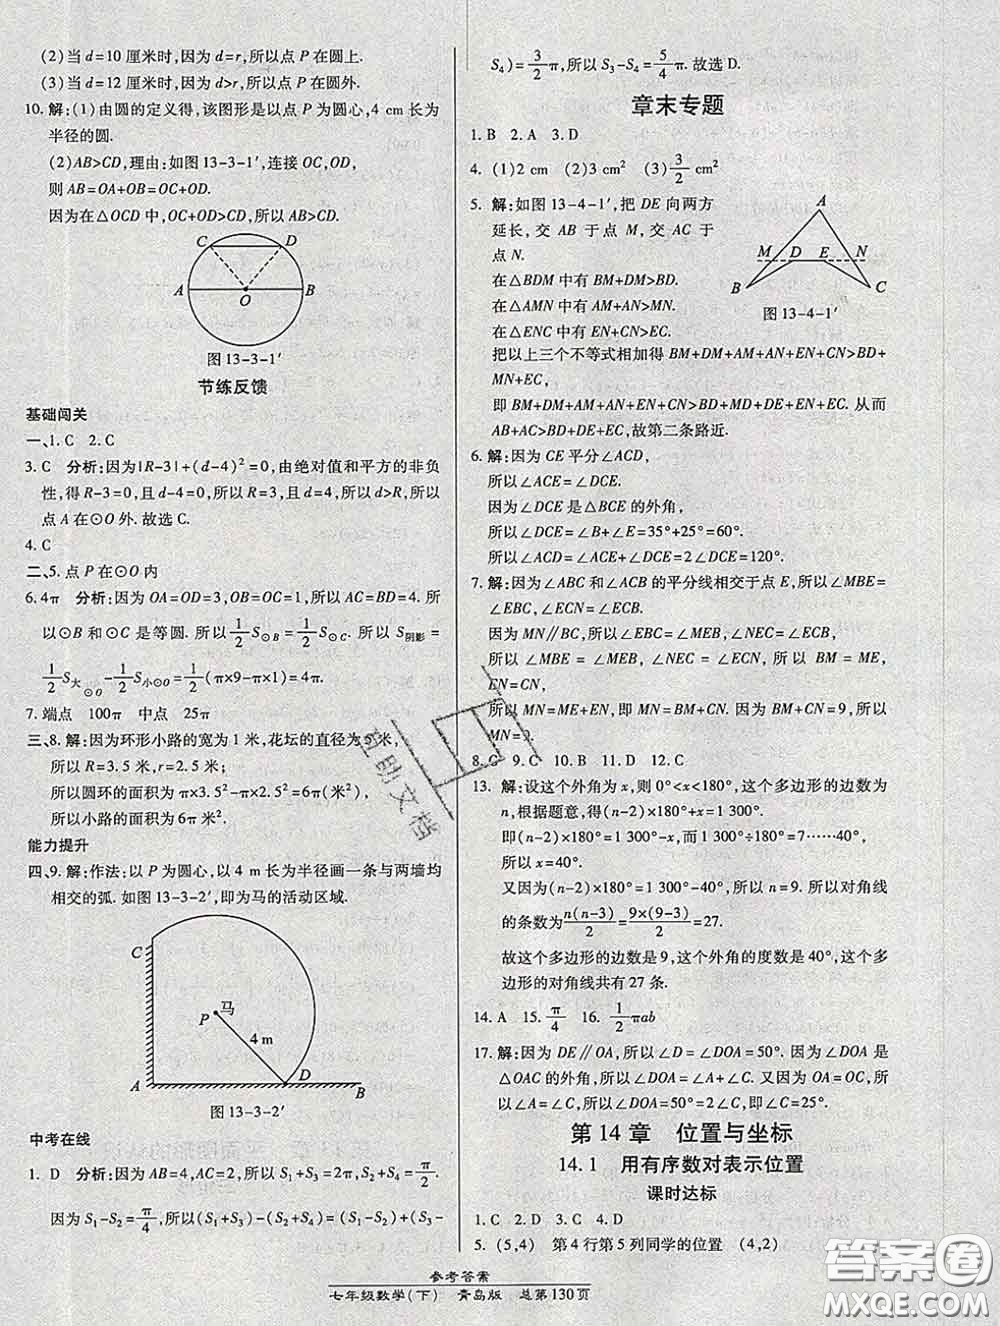 (2)当 d=10 厘米时,因为 d=r,所以点 P 在圆上.
(3)当 d=12 厘米时,因为 d>r,所以点 P 在圆外.
10. 解:(1)由圆的定义得,该图形是以点 P 为圆心,4 cm 长为
半径的圆.
(2)AB>CD,理由:如图 13-3-1′,连接 OC,OD,
则 AB=OA+OB=OC+OD.
因为在△OCD 中,OC+OD>CD,所以 AB>CD.
C D
A O B
图 13-3-1′
节练反馈
基础闯关
一、1. C 2. C
3. C 分析:因为|R-3|+(d-4)²=0,由绝对值和平方的非负
性,得 R-3=0,且 d-4=0,所以 R=3,且 d=4,所以 d>R,所以
点 A 在⊙O 外. 故选 C.
4. C
二、5. 点 P 在⊙O 内
6. 4π 分析:因为 OA=OD=3,OB=OC=1,所以 AC=BD=4. 所
以⊙B 和⊙C 是等圆. 所以 1/2 S⊙B = 1/2 S⊙C. 所以 S阴影 =
1/2 S大⊙O - 1/2 S小⊙O = 1/2 (π×9-π×1)=4π.
7. 端点 100π 中点 25π
三、8. 解:因为环形小路的宽为 1 米,花坛的直径为 5 米,
所以 R=3.5 米,r=2.5 米;
所以圆环的面积为 π×3.5²-π×2.5²=6π(米²).
所以小路的面积为 6π 米².
能力提升
四、9. 解:作法:以 P 为圆心,以 4 m 长为半径画一条与两墙均
相交的弧. 如图 13-3-2′,即为马的活动区域.
C
P 马
4 m
A D B
图 13-3-2′
中考在线
1. D 分析:因为 AB=4,AC=2,所以 S₁+S₃=2π,S₂+S₄=π/2.
因为 S₁-S₂=π/4,所以(S₁+S₃)-(S₂+S₄)=(S₁-S₂)+(S₃-
S₄)=3/2 π,所以 S₃-S₄=5/4 π. 故选 D.
章末专题
1. B 2. A 3. D
4. (1)2 cm (2)3 cm² (3)3/2 cm²
5. 解:如图 13-4-1′,把 DE 向两方
延长,交 AB 于点 M,交 AC 于
点 N.
在△BDM 中有 BM+DM>BD.
在△AMN 中有 AM+AN>MN.
在△ENC 中有 EN+CN>EC.
A
M D E N
B C
图 13-4-1′
把以上三个不等式相加得 BM+DM+AM+AN+EN+CN>BD+
MN+EC,
即 BM+DM+AM+AN+EN+CN>BD+MD+DE+EN+EC. 从而
AB+AC>BD+DE+EC,故第二条路近.
6. 解:因为 CE 平分∠ACD,
所以∠ACE=∠DCE.
因为∠DCE 是△BCE 的外角,
所以∠DCE=∠B+∠E=35°+25°=60°.
所以∠ACD=∠ACE+∠DCE=2∠DCE=120°.
7. 解:因为∠ABC 和∠ACB 的平分线相交于点 E,所以∠MBE=
∠EBC,∠ECN=∠ECB.
因为 MN∥BC,所以∠EBC=∠MEB,∠NEC=∠ECB,
所以∠MBE=∠MEB,∠NEC=∠ECN,所以 BM=ME,
EN=CN,
所以 MN=ME+EN,即 MN=BM+CN. 因为 BM+CN=9,所以
MN=9.
8. C 9. C 10. B 11. D 12. C
13. 解:设这个外角为 x,则 0°<x<180°,这个多边形的边数为
n,根据题意,得(n-2)×180°+x=1 300°.
即(n-2)×180°=1 300°-x,而 1 300°÷180°=7……40°,
所以 x=40°.
又因为(n-2)×180°=1 300°-40°,所以 n=9. 所以对角线
的条数为 n(n-3)/2 = 9×(9-3)/2 =27.
故这个多边形的边数是 9,这个外角的度数是 40°,这个多
边形的对角线共有 27 条.
14. A 15. π/4 16. 1/2 πab
17. 解:因为 DE∥OA,所以∠D=∠DOA=50°. 因为∠DOA 是
△OAC 的外角,所以∠DOA=∠A+∠C. 又因为 OA=OC,所
以∠A=∠C,所以∠DOA=2∠C=50°,所以∠C=25°.
第 14 章 位置与坐标
14. 1 用有序数对表示位置
课时达标
1. C 2. D 3. C 4. D
5. (5,4) 第 4 行第 5 列同学的位置 (4,2)
参考答案
七年级数学(下) 青岛版 总第130页
互助文档
答案圈
MXQE.COM